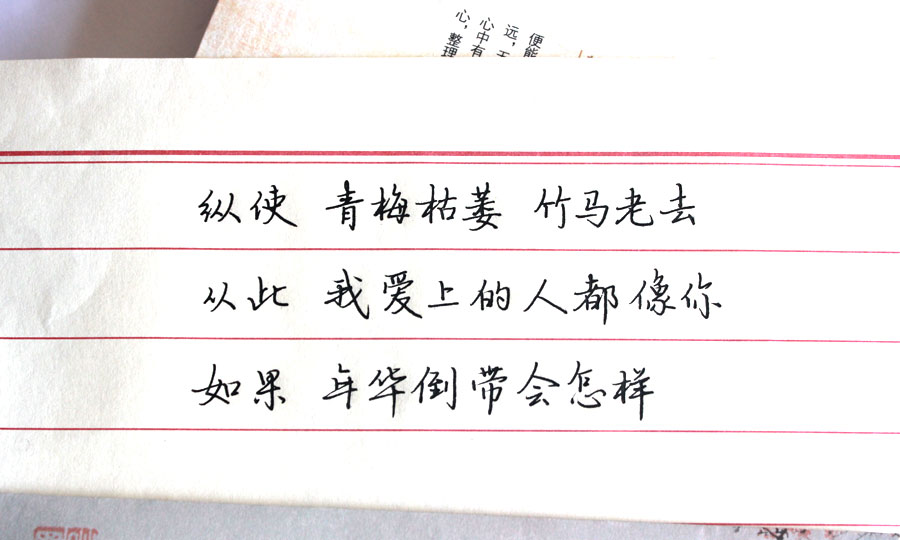 便能
远，
心中有
心，整理
纵使 青梅枯萎 竹马老去
从此 我爱上的人都像你
如果 年华倒带会怎样